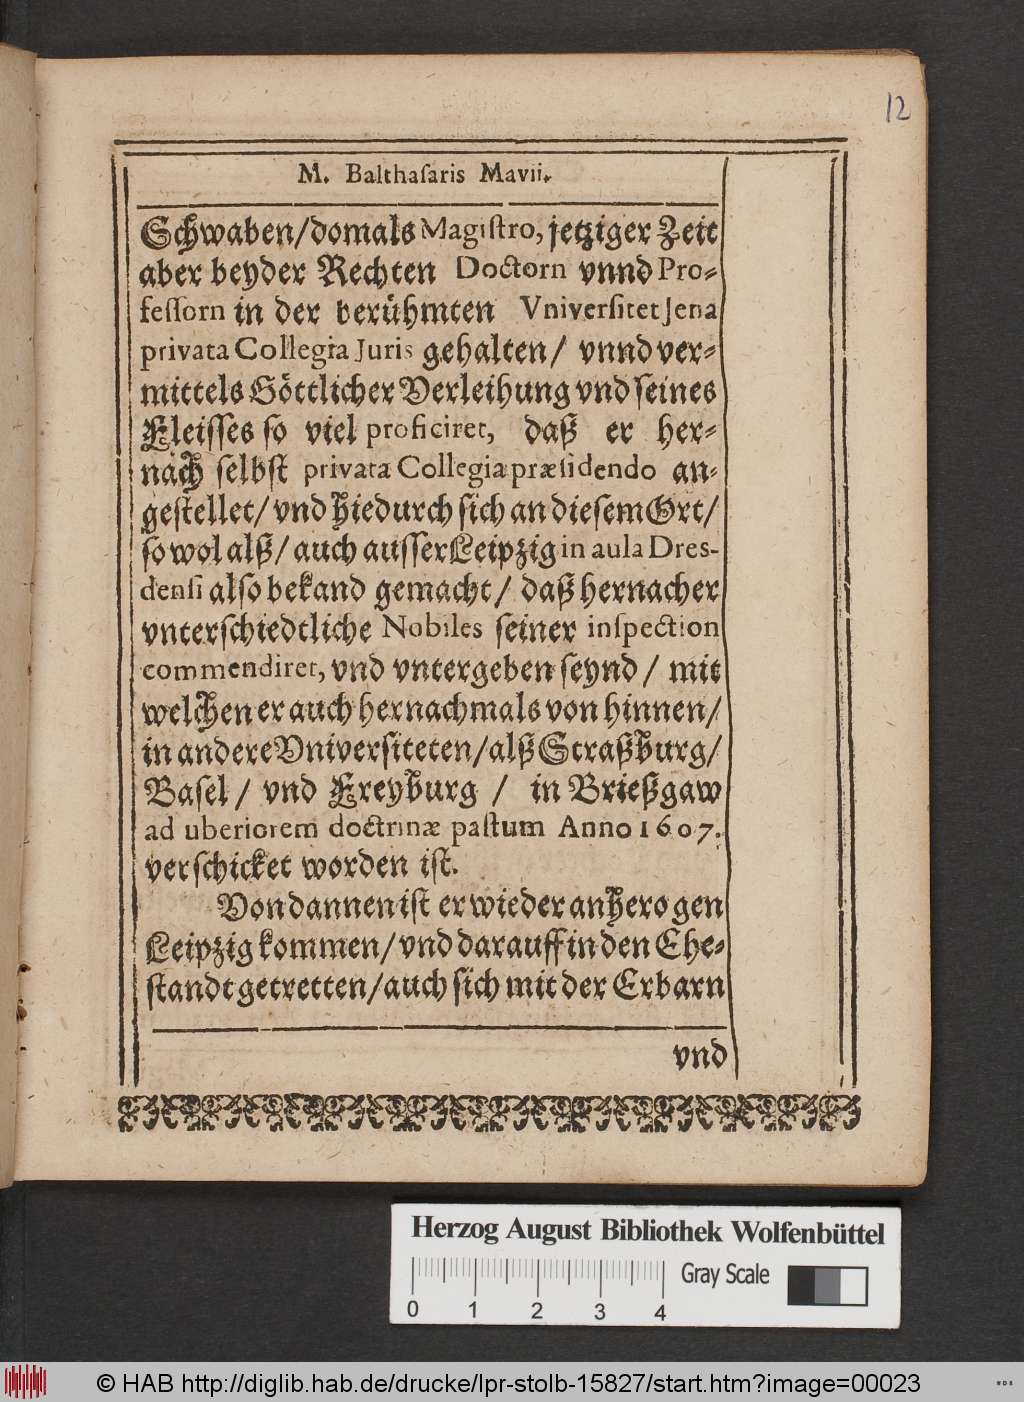 12
M. Balthaſaris Mavii.
Schwaben/domals Magiſtro, jetziger Zeit
aber beyder Rechten Doctorn vnnd Pro-
feſſorn in der berühmten Vniverſitet Jena
privata Collegia Juris gehalten/ vnnd ver-
mittels Göttlicher Verleihung vnd ſeines
Fleiſſes ſo viel proficiret, daß er her-
nach ſelbſt privata Collegia præſidendo an-
geſtellet/ vnd hiedurch ſich an dieſem Ort/
ſo wol alß/ auch auſſer Leipzig in aula Dres-
denſi alſo bekand gemacht/ daß hernacher
vnterſchiedtliche Nobiles ſeiner inſpection
commendiret, vnd vntergeben ſeynd/ mit
welchen er auch hernachmals von hinnen/
in andere Vniverſiteten/alß Straßburg/
Baſel/ vnd Freyburg/ in Brießgaw
ad uberiorem doctrinæ paſtum Anno 1607.
verſchicket worden iſt.
Von dannen iſt er wieder anhero gen
Leipzig kommen/ vnd darauff in den Ehe-
ſtandt getretten/auch ſich mit der Erbarn
vnd
Herzog August Bibliothek Wolfenbüttel
Gray Scale
0 1 2 3 4
© HAB http://diglib.hab.de/drucke/lpr-stolb-15827/start.htm?image=00023